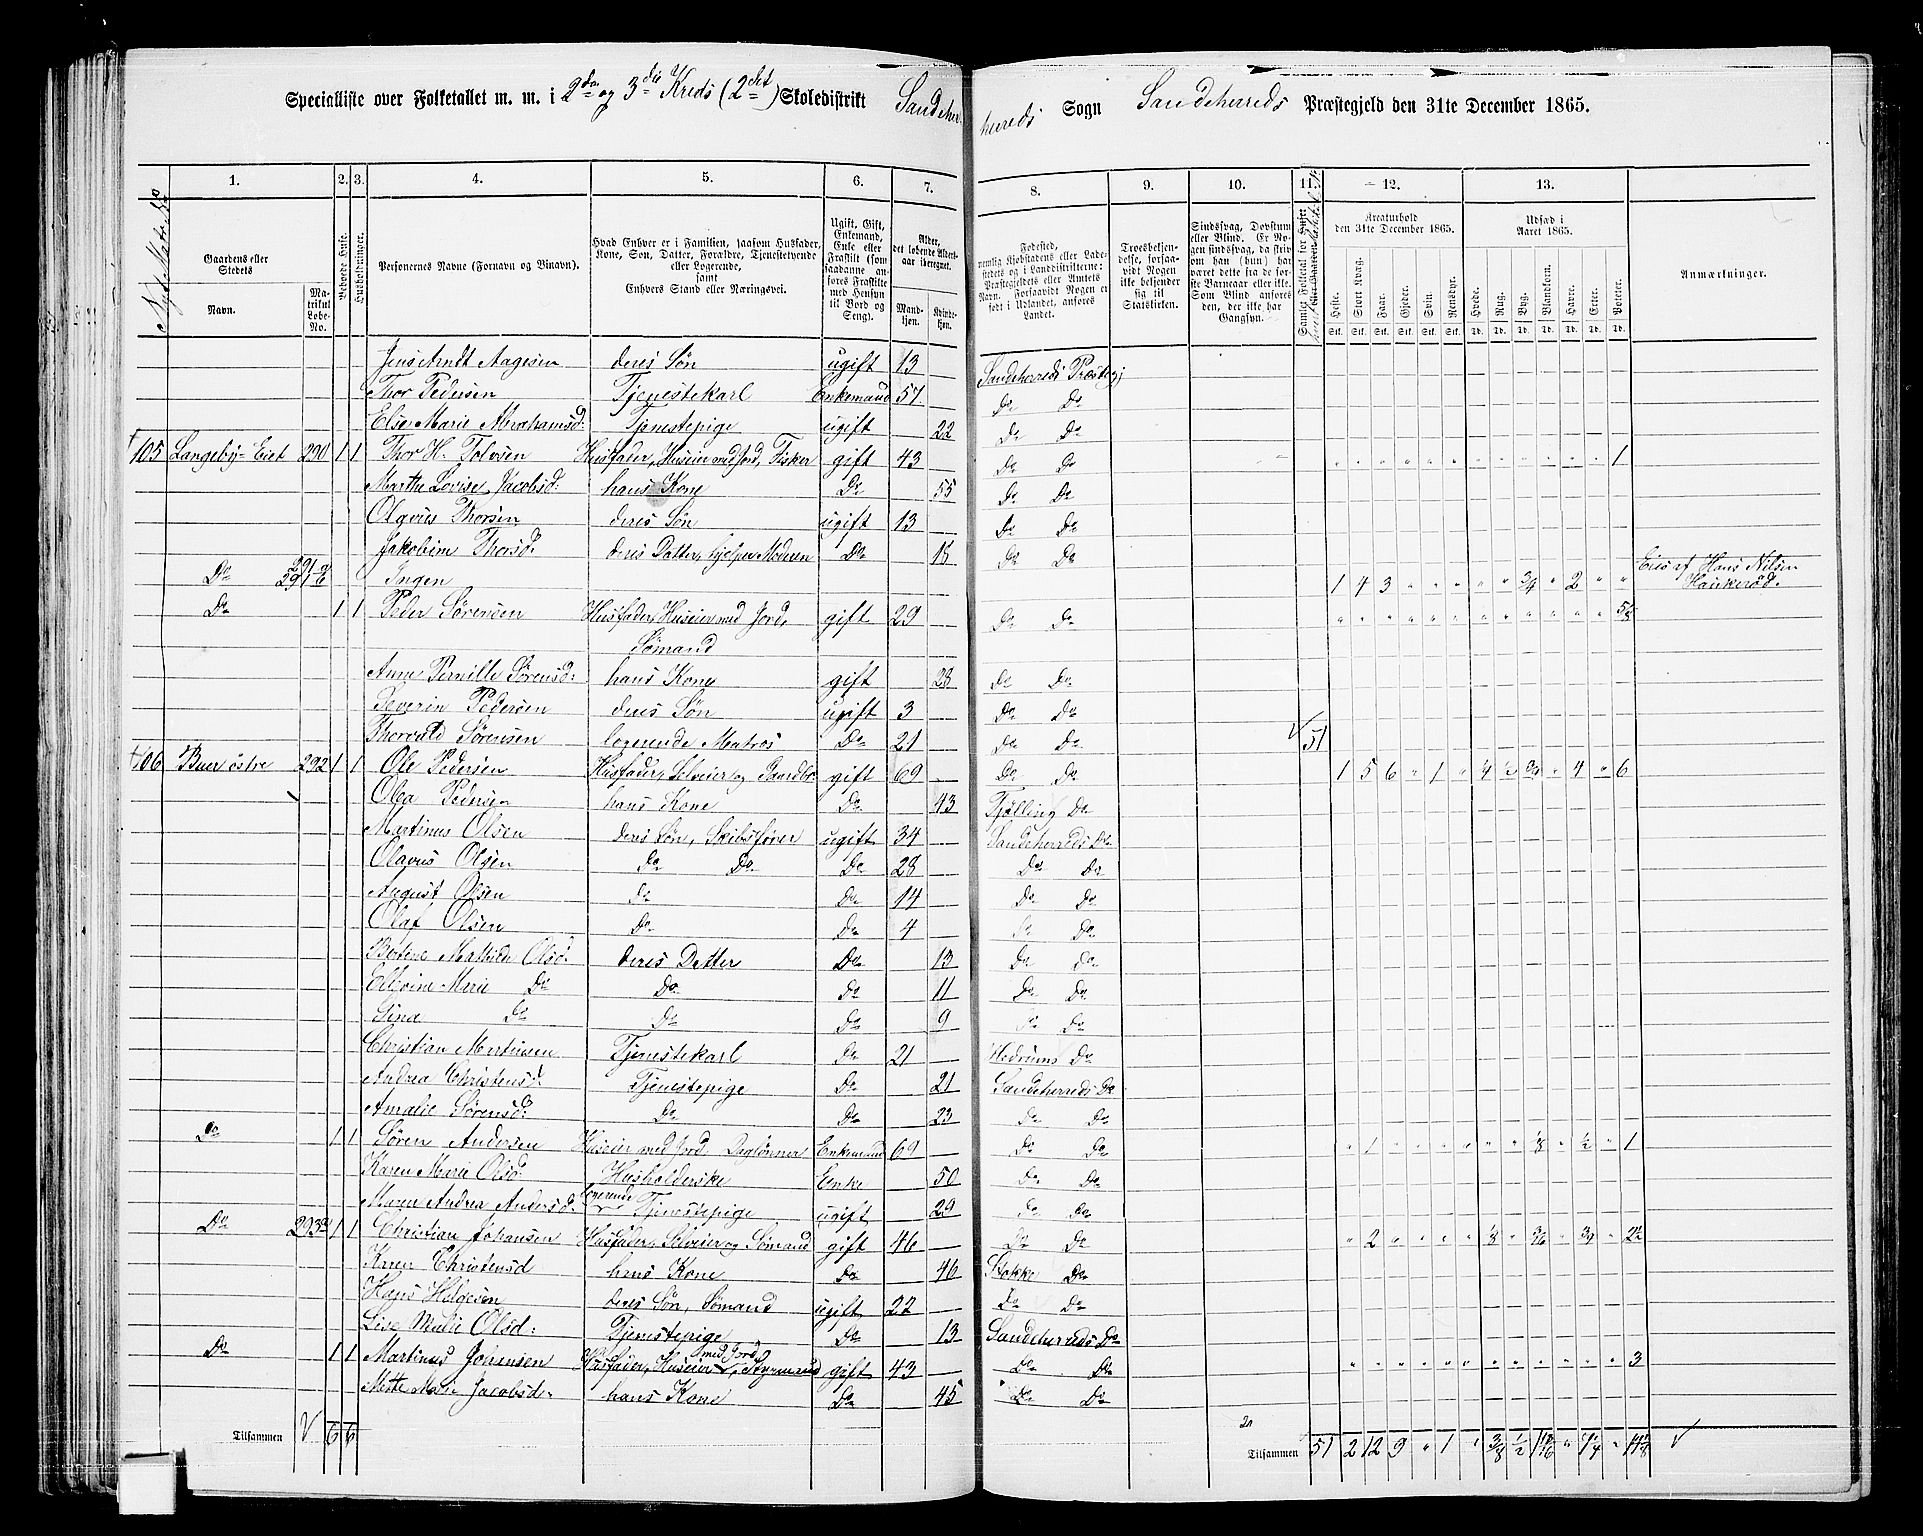 Specialliste over Folketallet m. m. i 2den og 3die Kreds (2det) Skoledistrikt Sandeherreds Sogn Sandeherreds Præstegjeld den 31te December 1865.
1. 2. 3. 4. 5. 6. 7. 8. 9. 10. 11. 12. 13.
Gaardens eller Stedets
Navn.
Matrikul Lobe-No.
Beboede Huse.
Husholdninger.
Personernes Navne (Fornavn og Binavn).
Hvad Enhver er i Familien, saasom Husfader, Kone, Søn, Datter, Forældre, Tjenestetyende eller Logerende, samt Enhvers Stand eller Næringsvei.
Ugift, Gift, Enkemand, Enke eller Fraskilt (som saadanne anføres Fraskilte med Hensyn til Bord og Seng).
Alder, det løbende Aldersaar iberegnet.
Mandkjøn. Kvindekjøn.
Fødested, nemlig Kjøbstadens eller Ladestedets og i Landdistrikterne: Præstegjeldets eller Amtets Navn. Forsaavidt Nogen er født i Udlandet, anføres Landet.
Troesbekjendelse, forsaavidt Nogen ikke bekjender sig til Statskirken.
Sindssvag, Døvstum eller Blind. Er Nogen sindssvag, da skriv om han (hun) har været dette fra de første Barneaar eller ikke. Som Blind anføres den, der ikke har Gangsyn.
Kreaturhold den 31te December 1865.
Heste. Stort Kvæg. Faar. Gjeder. Svin. Rensdyr.
Udsæd i Aaret 1865.
Hvede. Rug. Byg. Blandkorn. Havre. Erter. Poteter.
Anmærkninger.
Jens Arndt Aagesen deres Søn ugift 13 Sandeherreds Præstegj
Thor Pedersen Tjenestekarl Enkemand 57 Do Do
Else Marie Abrahamsd: Tjenestepige ugift 22 Do Do
105 Langeby-Eiet 290 1 1 Thor H. Tolvsen Husfader, Huseier med Jord, Fisker gift 43 Do Do 1
Marthe Lovise Jacobsd: hans Kone Do 55 Do Do
Olavus Thorsen deres Søn ugift 13 Do Do
Jakobine Thorsd. deres Datter, hjelper Moderen Do 15 Do Do
Do 291 a 291 b Ingen 1 4 3 3/4 2 Eies af Hans Nilsen Haukerød.
Do 1 1 Peder Sørensen Husfader, Huseier med Jord, gift 29 Do Do 5/8
Sømand
Anne Pernille Sørensd: hans Kone gift 28 Do Do
Severin Pedersen deres Søn ugift 3 Do Do
Thorvald Sørensen logerende Matros Do 21 Do Do 51
106 Buer østre 292 1 1 Ole Pedersen Husfader, Selveier og Gaardbr. gift 69 Do Do 1 5 6 1 1/4 1/2 3/4 4 6
Olea Pedersen hans Kone Do 43 Tjølling Do
Martinus Olsen deres Søn, Skibsfører ugift 34 Sandeherreds Do
Olavus Olsen Do Do Do 28 Do Do
August Olsen Do Do 14 Do Do
Olaf Olsen Do Do 4 Do Do
Bertine Mathilde Olsd. deres Datter Do 13 Do Do
Marie Do Do Do 11 Do Do
Sina Do Do Do 9 Do Do
Christian Martinsen Tjenestekarl Do 21 Hedrums Do
Andrea Christensd. Tjenestepige Do 21 Sandeherreds Do
Amalie Sørensd: Do Do 23 Do Do
Do 1 1 Søren Andersen Huseier med Jord, Daglønner Enkemand 69 Do Do 1 1/8 1/2 1
Karen Marie Olsd. Husholderske Enke 50 Do Do
Maren Andrea Andersd. logerende Tjenestepige ugift 29 Do Do
Do 293 1 1 Christian Johansen Husfader, Selveier og Sømand gift 46 Do Do 2 1/8
Karen Christensd hans Kone Do 46 Stokke Do
Hans Helgesen deres Søn, Sømand ugift 22 Do Do
Olsd: Tjenestepige Do 13 Sandeherreds Do
Do 1 1 Martinus Johansen Husfader, Huseier med Jord, Styrmand gift 43 Do Do 3
Mette Marie Jacobsd. hans Kone Do 45 Do Do
Tilsammen 6 6 Tilsammen 51 2 12 9 1 3/8 1/2